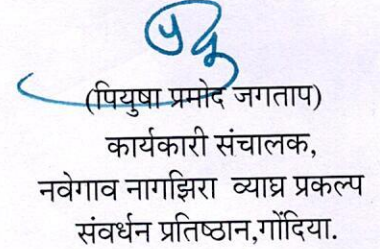 (पियुषा प्रमोद जगताप)
कार्यकारी संचालक,
नवेगाव नागझिरा व्याघ्र प्रकल्प
संवर्धन प्रतिष्ठान,गोंदिया.